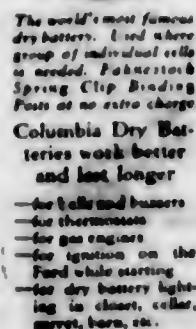 The world's most famous
dry battery. Used where
group of individual cells
is needed. Fahnestock
Spring Clip Binding
Posts at no extra charge
Columbia Dry Bat-
teries work better
and last longer
—for bells and buzzers
—for thermostats
—for gas engines
—for ignition on the
Ford while starting
—for dry battery light-
ing in closet, cellar,
garret, barn, etc.